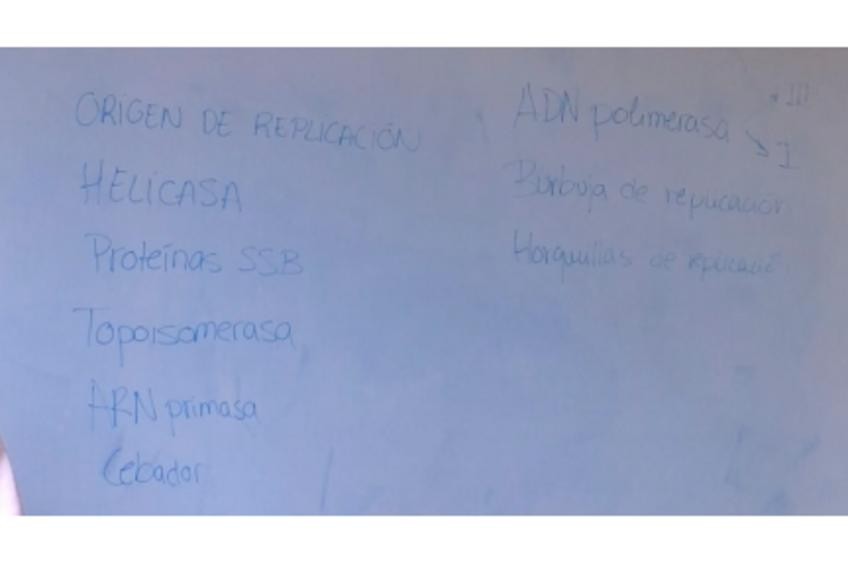 ORIGEN DE REPLICACIÓN
HELICASA
Proteínas SSB
Topoisomerasa
ARN primasa
Cebador
ADN polimerasa
III
I
Burbuja de replicación
Horquillas de replicació